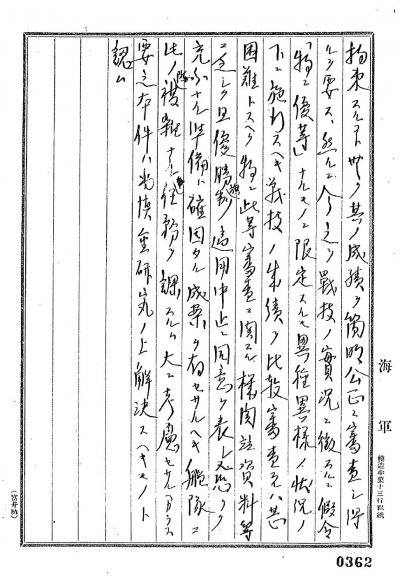 拘束スルコトナク其ノ成績ヲ簡明公正ニ審査シ得
ルヲ要ス、然ルニ今之ヲ戰技ノ實況ニ徴スルニ假令
「特ニ優等」ナルモノニ限定スルモ異種異様ノ状況ノ
下ニ施行スヘキ戰技ノ成績ノ比較審査ハ甚
困難トスヘク特ニ此等審査ニ関スル機関
資料等
シク且優勝旗
適用中止ニ同意ヲ表シ
充分ナル準備ト確固タル成案ヲ有セサルヘキ艦隊ニ
此ノ複雑ナル任務ヲ課スルハ大ニ考慮セサルヘカラス
要之本件ハ尚慎重研究ノ上解決スヘキモノト
認ム
海軍
0362